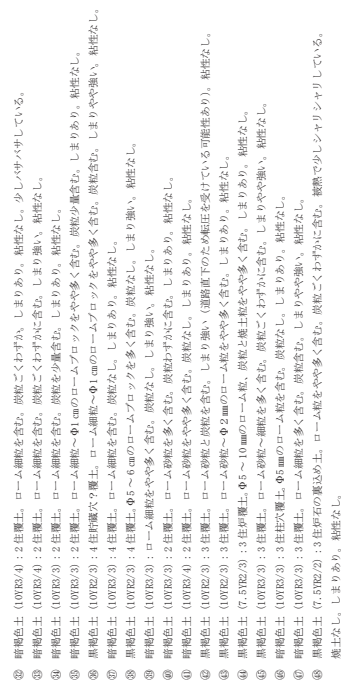 ㉜ 暗褐色土 (10YR3/4)：2住覆土。ローム細粒を含む。炭粒ごくわずか。しまりあり。粘性なし。少しパサパサしている。
㉝ 暗褐色土 (10YR3/4)：2住覆土。ローム細粒を含む。炭粒ごくわずかに含む。しまり強い。粘性なし。
㉞ 暗褐色土 (10YR3/4)：2住覆土。ローム細粒を含む。炭粒を少量含む。しまりあり。粘性なし。
㉟ 暗褐色土 (10YR3/3)：2住覆土。ローム細粒～Φ1㎝のロームブロックをやや多く含む。炭粒少量含む。しまりあり。粘性なし。
㊱ 黒褐色土 (10YR2/3)：4住貯蔵穴？覆土。ローム細粒～Φ1㎝のロームブロックをやや多く含む。炭粒含む。しまりやや強い。粘性なし。
㊲ 暗褐色土 (10YR3/3)：4住覆土。ローム細粒を含む。炭粒なし。しまりあり。粘性なし。
㊳ 黒褐色土 (10YR2/3)：4住覆土。Φ5～6㎝のロームブロックを多く含む。炭粒なし。しまり強い。粘性なし。
㊴ 暗褐色土 (10YR3/3)：ローム細粒をやや多く含む。炭粒なし。しまり強い。粘性なし。
㊵ 暗褐色土 (10YR3/4)：2住覆土。ローム砂粒を多く含む。炭粒わずかに含む。しまりあり。粘性なし。
㊶ 暗褐色土 (10YR3/4)：2住覆土。ローム砂粒をやや多く含む。炭粒なし。しまりあり。粘性なし。
㊷ 黒褐色土 (10YR2/3)：3住覆土。ローム砂粒と炭粒を含む。しまり強い（道路直下のため転圧を受けている可能性あり）。粘性なし。
㊸ 黒褐色土 (10YR2/3)：3住覆土。ローム砂粒～Φ2㎜のローム粒をやや多く含む。しまりあり。粘性なし。
㊹ 黒褐色土 (7.5YR2/3)：3住炉覆土。Φ5～10㎜のローム粒、炭粒と焼土粒をやや多く含む。しまりあり。粘性なし。
㊺ 黒褐色土 (10YR3/3)：3住覆土。ローム砂粒～細粒を多く含む。炭粒ごくわずかに含む。しまりやや強い。粘性なし。
㊻ 暗褐色土 (10YR3/3)：3住柱穴覆土。Φ5㎜のローム粒を含む。炭粒なし。しまりあり。粘性なし。
㊼ 暗褐色土 (10YR3/3)：3住覆土。ローム細粒を多く含む。炭粒含む。しまりやや強い。粘性なし。
㊽ 黒褐色土 (7.5YR2/2)：3住炉石の裏込め土。ローム粒をやや多く含む。炭粒ごくわずかに含む。被熱で少しシャリシャリしている。
焼土なし。しまりあり。粘性なし。